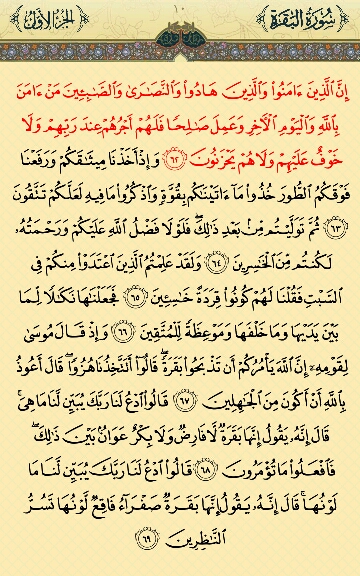 سُورَةُ البَقَرَة ١٠ الجُزءُ الأَوَّل
إِنَّ الَّذِينَ ءَامَنُوا۟ وَالَّذِينَ هَادُوا۟ وَالنَّصَـٰرَىٰ وَالصَّـٰبِـِٔينَ مَنْ ءَامَنَ
بِاللَّهِ وَالْيَوْمِ الْـَٔاخِرِ وَعَمِلَ صَـٰلِحًا فَلَهُمْ أَجْرُهُمْ عِندَ رَبِّهِمْ وَلَا
خَوْفٌ عَلَيْهِمْ وَلَا هُمْ يَحْزَنُونَ ﴿٦٢﴾ وَإِذْ أَخَذْنَا مِيثَـٰقَكُمْ وَرَفَعْنَا
فَوْقَكُمُ الطُّورَ خُذُوا۟ مَآ ءَاتَيْنَـٰكُم بِقُوَّةٍ وَاذْكُرُوا۟ مَا فِيهِ لَعَلَّكُمْ تَتَّقُونَ
﴿٦٣﴾ ثُمَّ تَوَلَّيْتُم مِّنۢ بَعْدِ ذَٰلِكَ ۖ فَلَوْلَا فَضْلُ اللَّهِ عَلَيْكُمْ وَرَحْمَتُهُۥ
لَكُنتُم مِّنَ الْخَـٰسِرِينَ ﴿٦٤﴾ وَلَقَدْ عَلِمْتُمُ الَّذِينَ اعْتَدَوْا۟ مِنكُمْ فِى
السَّبْتِ فَقُلْنَا لَهُمْ كُونُوا۟ قِرَدَةً خَـٰسِـِٔينَ ﴿٦٥﴾ فَجَعَلْنَـٰهَا نَكَـٰلًا لِّمَا
بَيْنَ يَدَيْهَا وَمَا خَلْفَهَا وَمَوْعِظَةً لِّلْمُتَّقِينَ ﴿٦٦﴾ وَإِذْ قَالَ مُوسَىٰ
لِقَوْمِهِۦٓ إِنَّ اللَّهَ يَأْمُرُكُمْ أَن تَذْبَحُوا۟ بَقَرَةً ۖ قَالُوٓا۟ أَتَتَّخِذُنَا هُزُوًا ۖ قَالَ أَعُوذُ
بِاللَّهِ أَنْ أَكُونَ مِنَ الْجَـٰهِلِينَ ﴿٦٧﴾ قَالُوا۟ ادْعُ لَنَا رَبَّكَ يُبَيِّن لَّنَا مَا هِىَ ۚ
قَالَ إِنَّهُۥ يَقُولُ إِنَّهَا بَقَرَةٌ لَّا فَارِضٌ وَلَا بِكْرٌ عَوَانٌۢ بَيْنَ ذَٰلِكَ ۖ
فَافْعَلُوا۟ مَا تُؤْمَرُونَ ﴿٦٨﴾ قَالُوا۟ ادْعُ لَنَا رَبَّكَ يُبَيِّن لَّنَا مَا
لَوْنُهَا ۚ قَالَ إِنَّهُۥ يَقُولُ إِنَّهَا بَقَرَةٌ صَفْرَآءُ فَاقِعٌ لَّوْنُهَا تَسُرُّ
النَّـٰظِرِينَ ﴿٦٩﴾